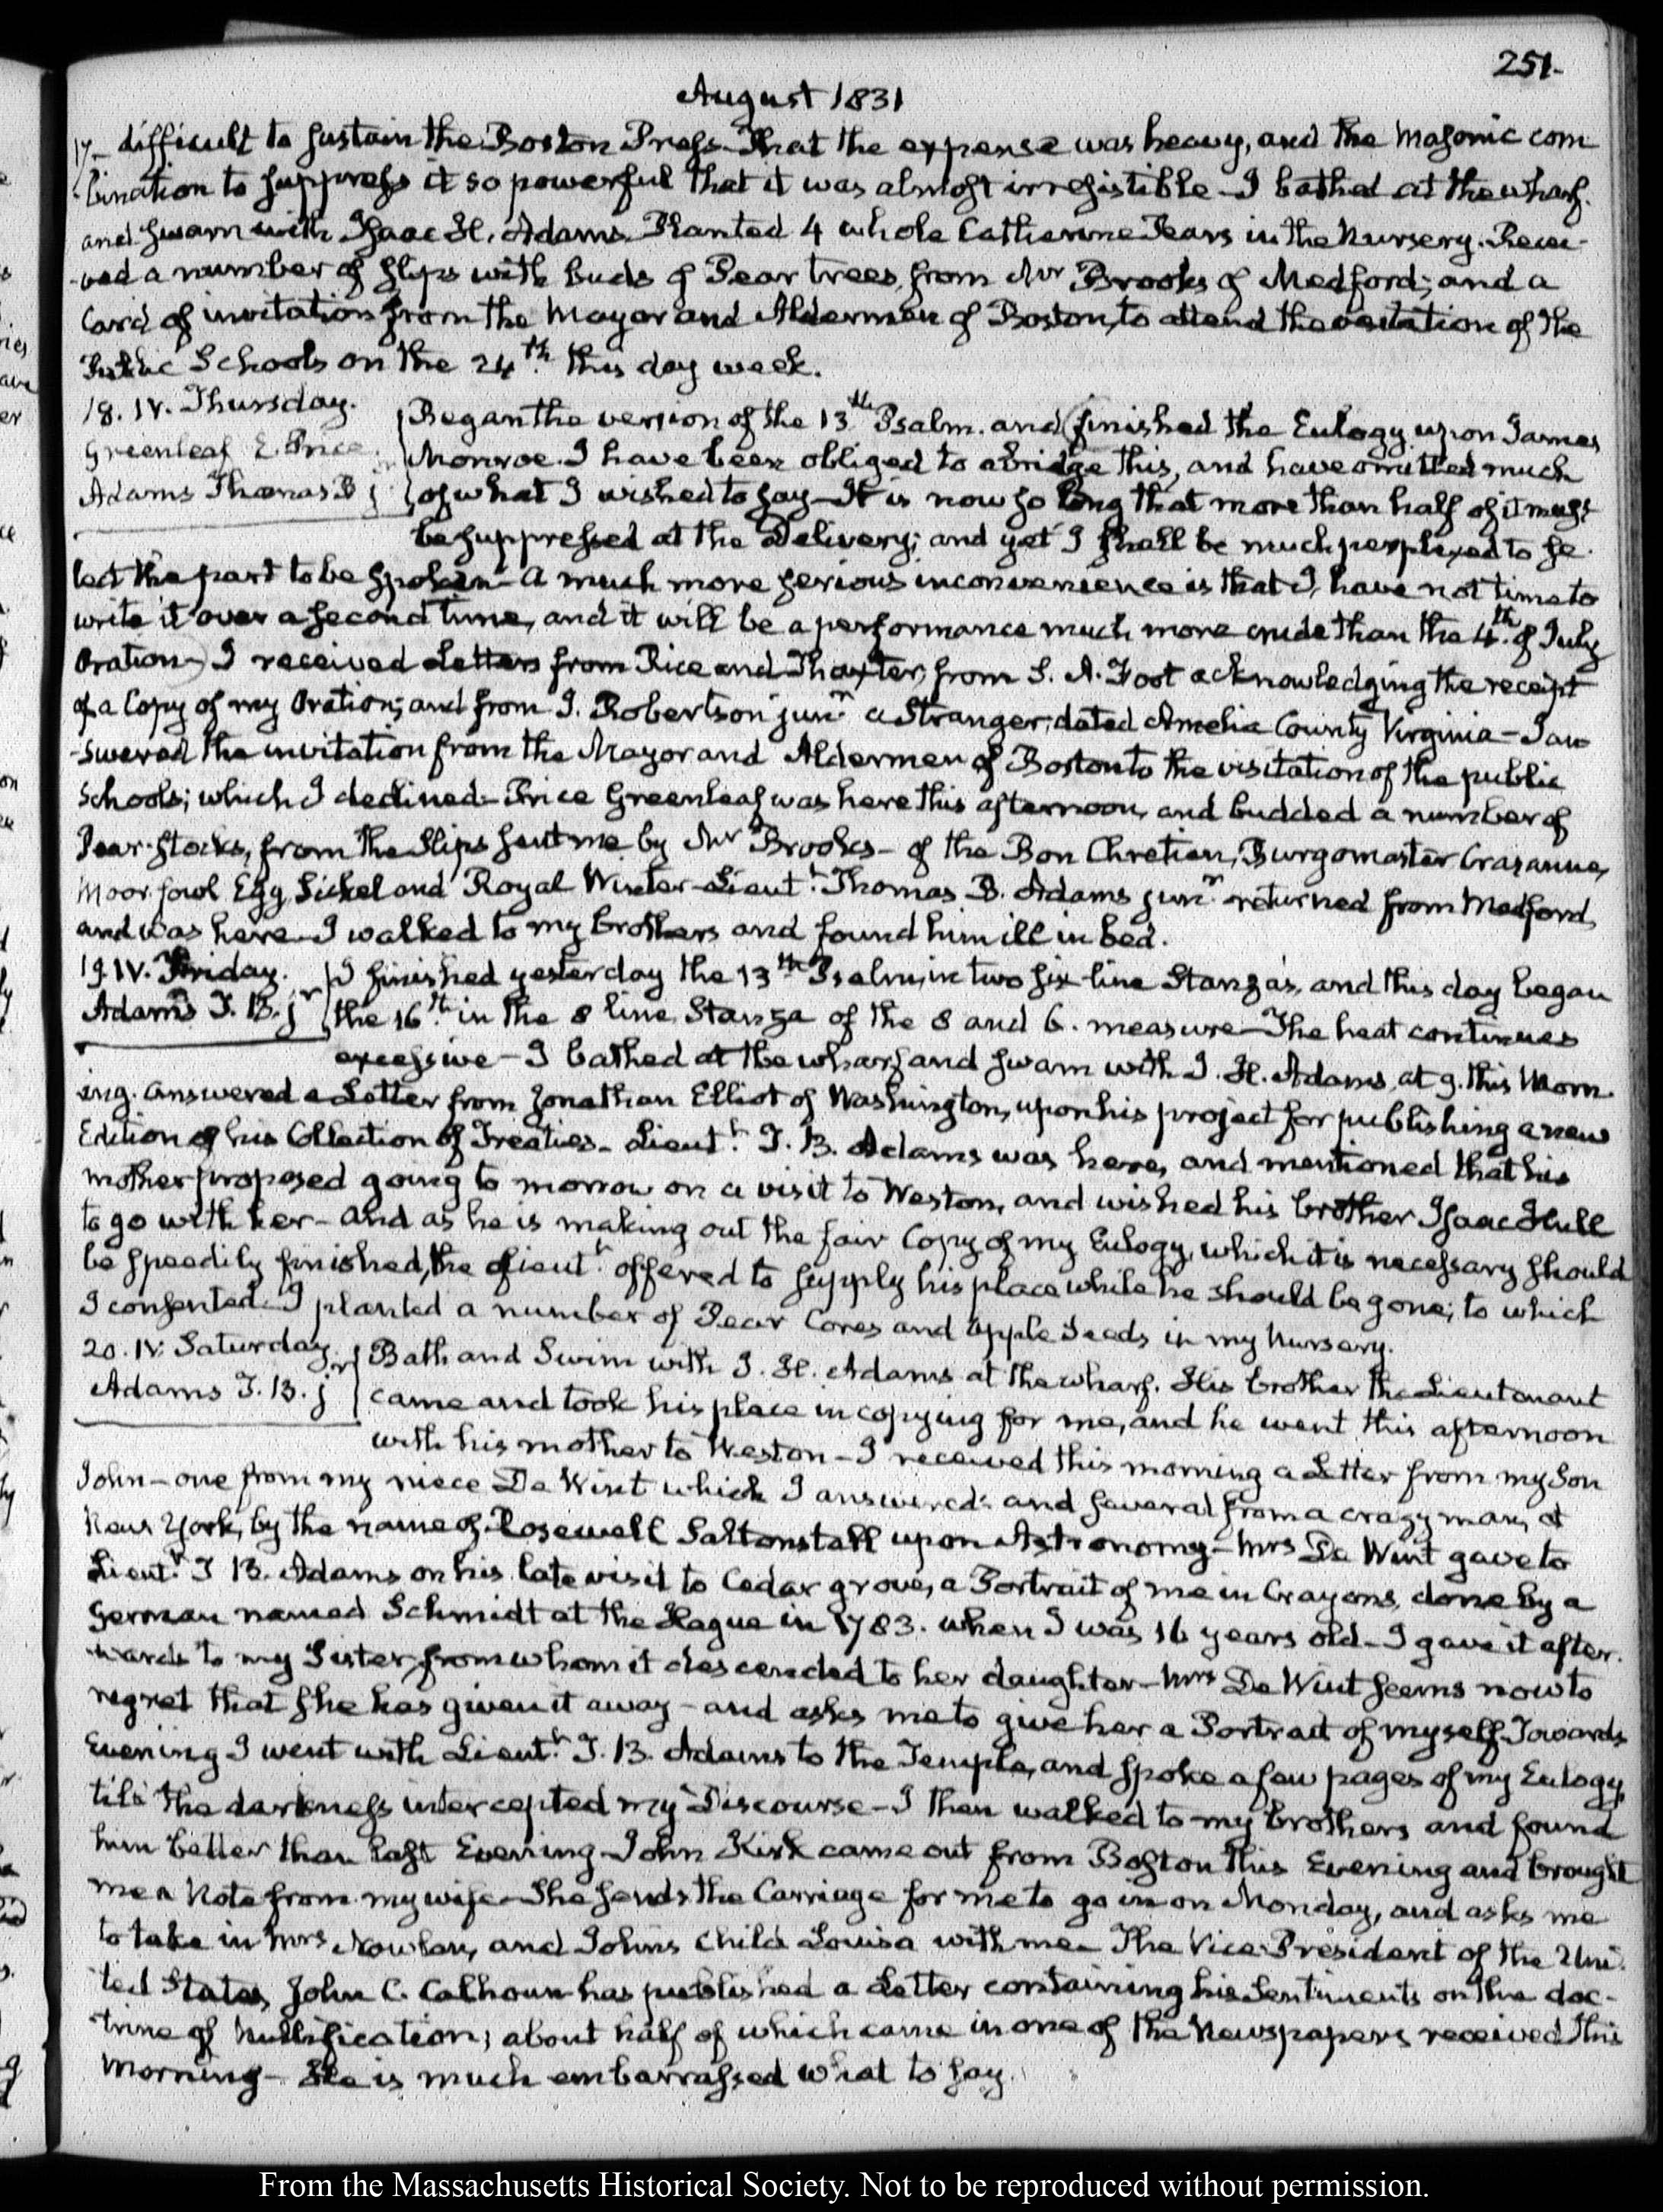 251.
August 1831
17— difficult to sustain the Boston Press. That the expense was heavy, and the Masonic com
-bination to suppress it so powerful that it was almost irresistible— I bathed at the wharf.
and swam with Isaac H. Adams. Planted 4 whole Catherine Pears in the Nursery. Recei-
-ved a number of slips with buds of Pear trees, from Mr Brooks of Medford; and a
Card of invitation from the Mayor and Aldermen of Boston, to attend the visitation of the
Public Schools on the 24th. this day week.
18. IV. Thursday.
Greenleaf E. Price
Adams Thomas B jr
Began the version of the 13th Psalm. and (finished the Eulogy upon James
Monroe. I have been obliged to abridge this, and have omitted much
of what I wished to say— It is now so long that more than half of it must
be suppressed at the Delivery; and yet I shall be much perplexed to se-
lect the part to be spoken— A much more serious inconvenience is that I have not time to
write it over a second time, and it will be a performance much more crude than the 4th. of July
Oration—) I received Letters from Rice and Thaxter, from S. A. Foot acknowledging the receipt
of a Copy of my Oration; and from J. Robertson junr a Stranger, dated Amelia County Virginia— I an
-swered the invitation from the Mayor and Aldermen of Boston to the visitation of the public
Schools; which I declined— Price Greenleaf was here this afternoon, and budded a number of
Pear-stocks, from the slips sent me by Mr Brooks— of the Bon Chretien, Burgomaster Crasanne,
Moor fowl Egg, Sickel and Royal Winter— Lieutt. Thomas B. Adams junr. returned from Medford,
and was here— I walked to my brothers and found him ill in bed.
19. IV. Friday.
Adams T. B. jr
I finished yesterday the 13th Psalm, in two six line Stanza's, and this day began
the 16th. in the 8 line Stanza of the 8 and 6. measure— The heat continues
excessive— I bathed at the wharf and swam with I. H. Adams at 9. this Morn-
ing. answered a Letter from Jonathan Elliot of Washington, upon his project for publishing a new
Edition of his Collection of Treaties— Lieutt. T. B. Adams was here, and mentioned that his
mother proposed going to morrow on a visit to Weston, and wished his brother Isaac Hull
to go with her— and as he is making out the fair Copy of my Eulogy, which it is necessary should
be speedily finished, the Lieutt. offered to supply his place while he should be gone; to which
I consented. I planted a number of Pear Cores and apple Seeds in my Nursery.
20. IV. Saturday.
Adams T. B. jr
Bath and Swim with I. H. Adams at the wharf. His brother the Lieutenant
came and took his place in copying for me, and he went this afternoon
with his mother to Weston— I received this morning a Letter from my Son
John— one from my niece De Wint which I answered: and several from a crazy man, at
New York, by the name of Rosewell Saltonstall upon Astronomy— Mrs De Wint gave to
Lieutt. T B. Adams on his late visit to Cedar grove, a Portrait of me in Crayons, done by a
German named Schmidt at the Hague in 1783. when I was 16 years old— I gave it after-
wards to my Sister, from whom it descended to her daughter— Mrs De Wint seems now to
regret that she has given it away— and asks me to give her a Portrait of myself. Towards
Evening I went with Lieutt. T. B. Adams to the Temple, and spoke a few pages of my Eulogy,
till the darkness intercepted my Discourse— I then walked to my brothers and found
him better than last Evening. John Kirk came out from Boston this Evening and brought
me a Note from my wife— She sends the Carriage for me to go in on Monday, and asks me
to take in Mrs Nowlan, and Johns child Louisa with me— The Vice-President of the Uni-
ted States, John C. Calhoun has published a Letter containing his Sentiments on the doc-
trine of Nullification; about half of which came in one of the Newspapers received this
Morning— He is much embarrassed what to say.
From the Massachusetts Historical Society. Not to be reproduced without permission.